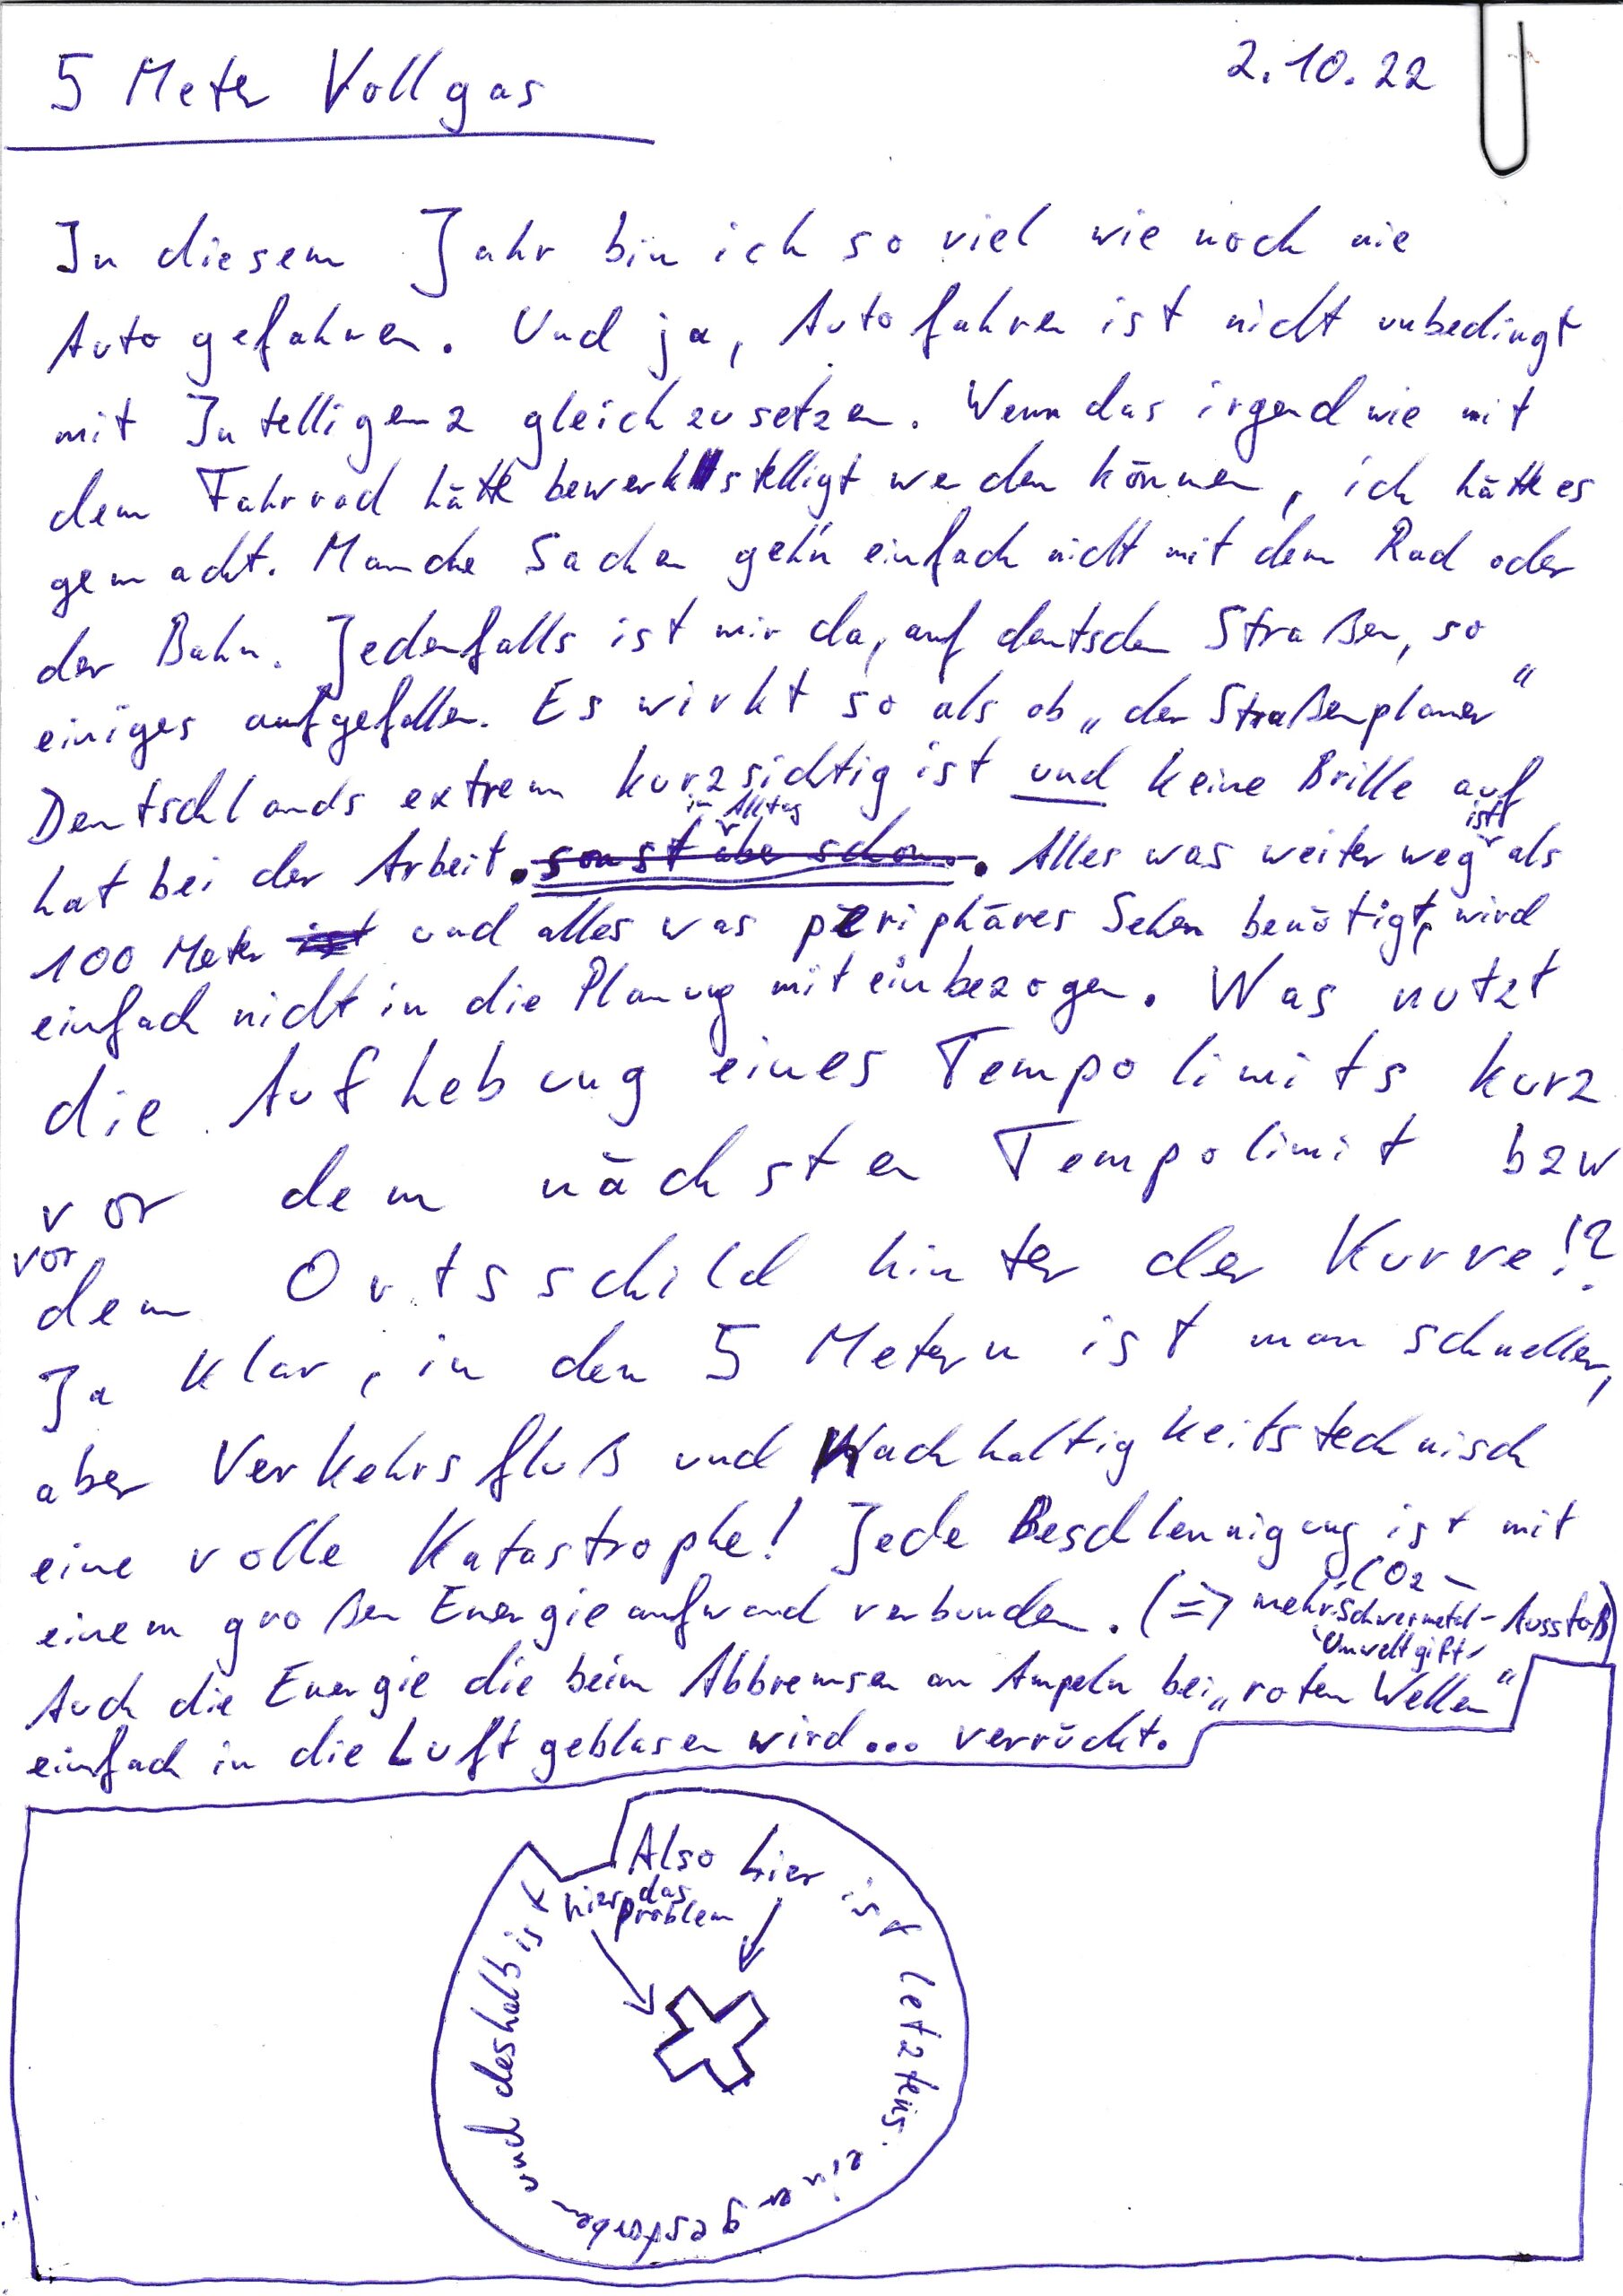 5 Meter Vollgas
2.10.22
In diesem Jahr bin ich so viel wie noch nie
Auto gefahren. Und ja, Auto fahren ist nicht unbedingt
mit Intelligenz gleichzusetzen. Wenn das irgendwie mit
dem Fahrrad hätte bewerkstelligt werden können, ich hätte es
gemacht. Manche Sachen geh'n einfach nicht mit dem Rad oder
der Bahn. Jedenfalls ist mir da, auf deutschen Straßen, so
einiges aufgefallen. Es wirkt so als ob „der Straßenplaner“
Deutschlands extrem kurzsichtig ist und keine Brille auf
im Alltag
ist
hat bei der Arbeit. sonst aber schon. . Alles was weiter weg als
100 Meter ist und alles was periphäres Sehen benötigt, wird
einfach nicht in die Planung miteinbezogen. Was nutzt
die Aufhebung eines Tempolimits kurz
vor dem nächsten Tempolimit bzw
vor
dem Ortsschild hinter der Kurve!?
Ja klar, in den 5 Metern ist man schneller,
aber Verkehrsfluß und Nachhaltigkeitstechnisch
eine volle Katastrophe! Jede Beschleunigung ist mit
CO2-
einem großen Energieaufwand verbunden. (=> mehr Schwermetal- Ausstoß)
Umweltgift-
Auch die Energie die beim Abbremsen an Ampeln bei „roten Wellen“
einfach in die Luft geblasen wird... verrückt.
Also hier ist letztens einer gestorben und deshalb ist
hier das
Problem